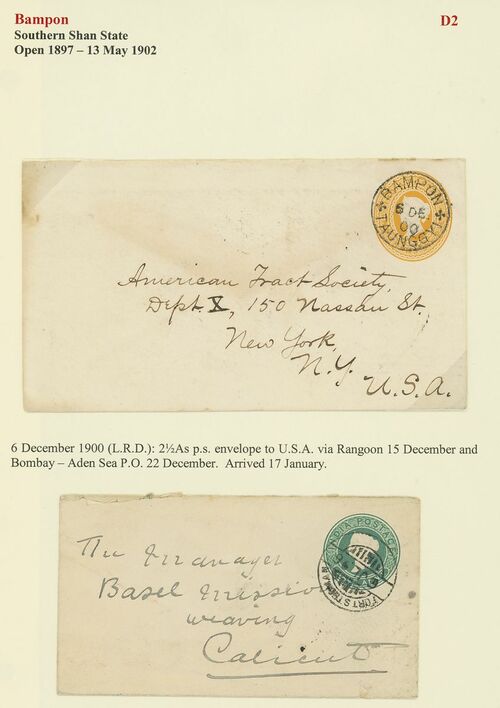 Bampon
D2
Southern Shan State
Open 1897 – 13 May 1902
BAMPON
6 DE
00
TAUNGGYI
American Tract Society,
Dept. X, 150 Nassau St.
New York,
N.Y.
U.S.A.
6 December 1900 (L.R.D.): 2½As p.s. envelope to U.S.A. via Rangoon 15 December and
Bombay – Aden Sea P.O. 22 December. Arrived 17 January.
INDIA POSTAGE
The Manager
Basel Mission
weaving
Calicut